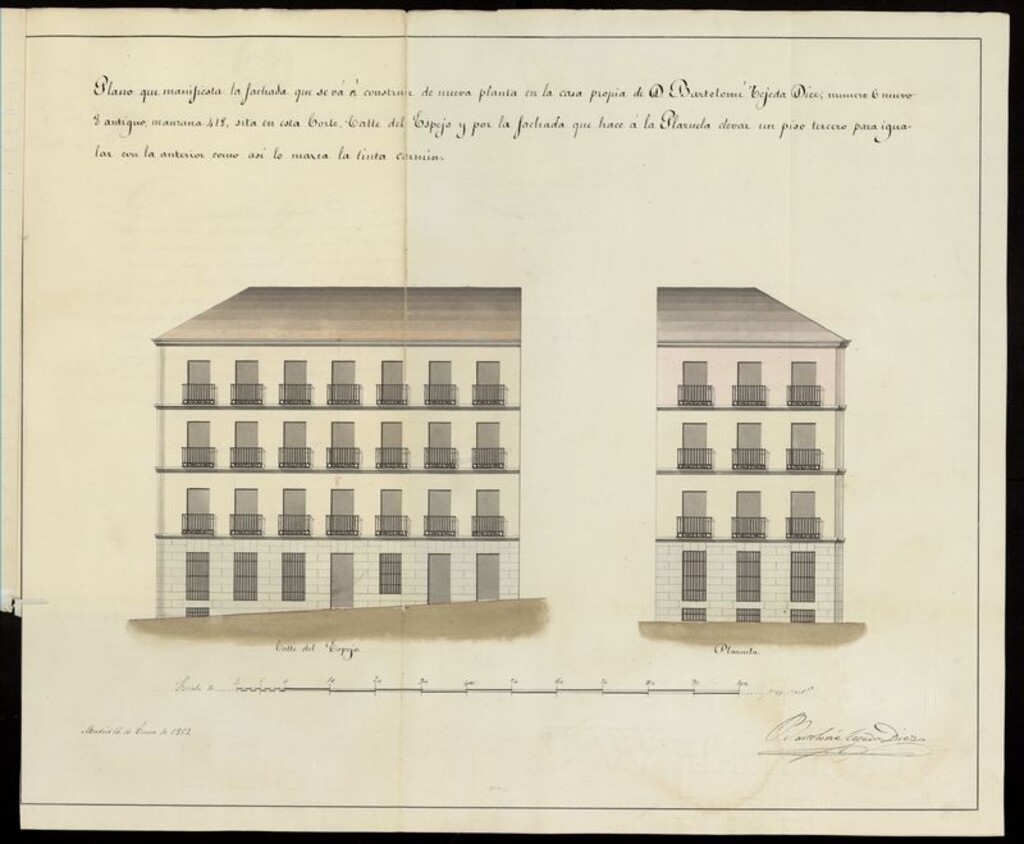 Plano que manifiesta la fachada que se vá á construir de nueva planta en la casa propia de D. Bartolomé Tejeda Diez, numero 6 nuevo
8 antiguo, manzana 418, sita en esta Corte, Calle del Espejo y por la fachada que hace á la Plazuela elevar un piso tercero para igua-
lar con la anterior como así lo marca la tinta carmin.
Calle del Espejo.
Plazuela.
Escala de
10 20 30 40 50 60 70 80 90 100
Madrid de Enero de 1852
Bartolomé Tejeda Diez